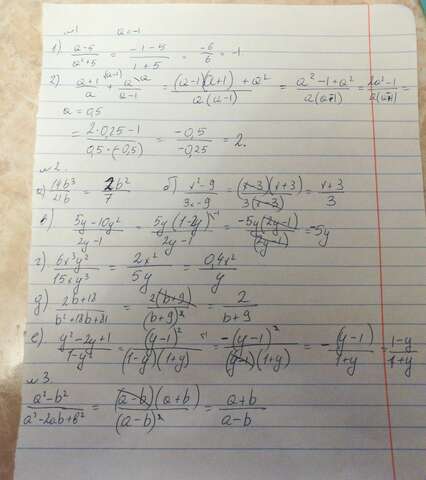 №1 a=-1
1) (a-5)/(a²+5) = (-1-5)/(1+5) = -6/6 = -1
2) (a+1)/a + a/(a-1) = ((a-1)(a+1)+a²)/(a(a-1)) = (a²-1+a²)/(a(a-1)) = (2a²-1)/(a(a-1)) =
a = 0,5
= (2·0,25-1)/(0,5·(-0,5)) = -0,5/-0,25 = 2.
№2.
а) 14b³/21b = 2b²/7 б) (x²-9)/(3x-9) = ((x-3)(x+3))/(3(x-3)) = (x+3)/3
в) (5y-10y²)/(2y-1) = 5y(1-2y)/(2y-1) = -5y(2y-1)/(2y-1) = -5y
г) 6x³y²/15xy³ = 2x²/5y = 0,4x²/y
д) (2b+18)/(b²+18b+81) = 2(b+9)/(b+9)² = 2/(b+9)
е) (y²-2y+1)/(1-y²) = (y-1)²/((1-y)(1+y)) = -(y-1)²/((y-1)(1+y)) = -(y-1)/(1+y) = (1-y)/(1+y)
№3.
(a²-b²)/(a²-2ab+b²) = ((a-b)(a+b))/(a-b)² = (a+b)/(a-b)